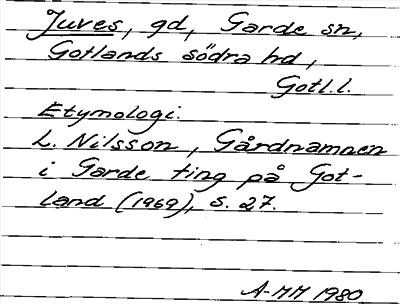 Juves, gd, Garde sn,
Gotlands södra hd,
Gotl.l.
Etymologi:
L. Nilsson, Gårdnamnen
i Garde ting på Got-
land (1969), s. 27.
A-MM 1980